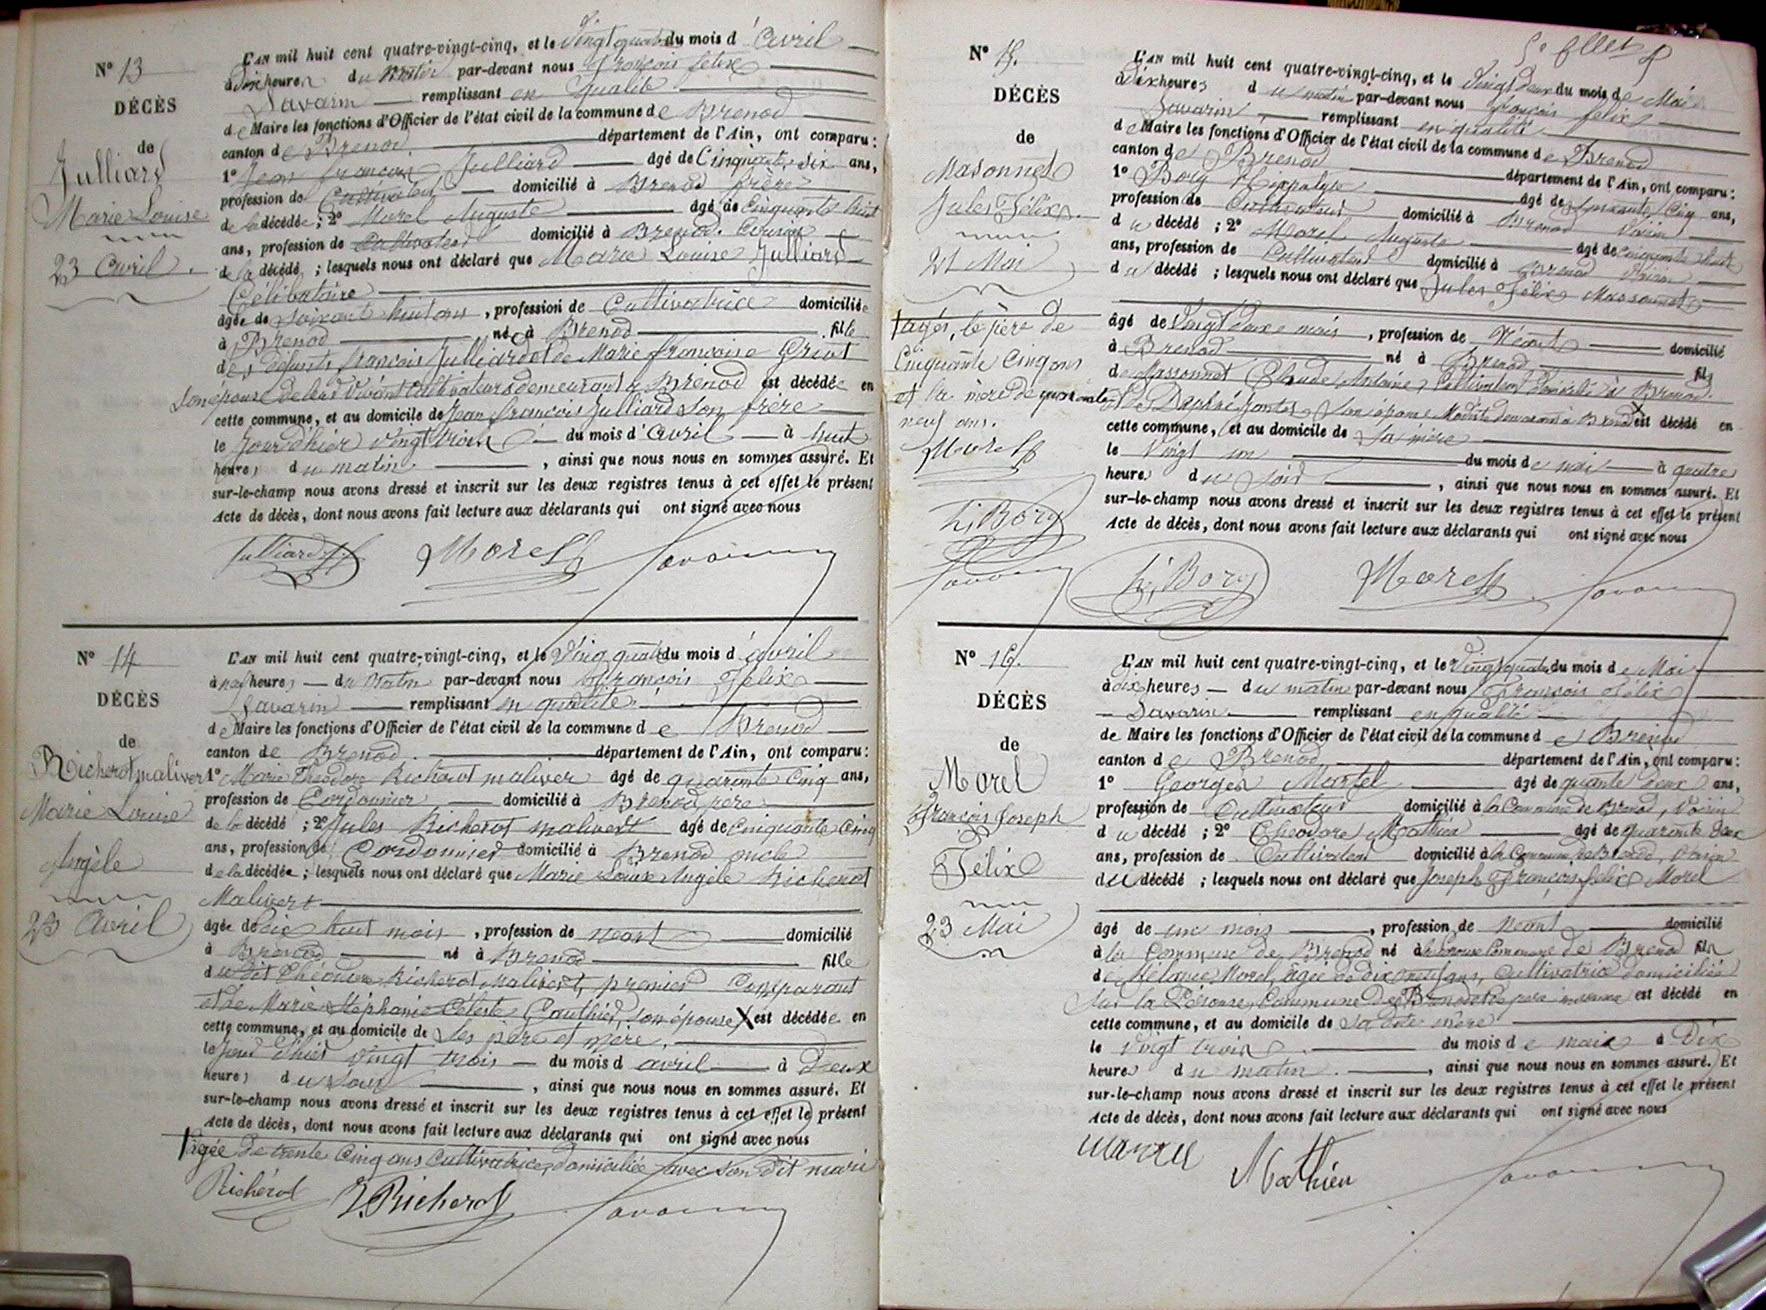 N° 13
DÉCÈS
de
Julliard
Marie Louise
23 Avril.
L'AN mil huit cent quatre-vingt-cinq, et le Vingt quatre du mois d'Avril
à dix heures du Matin par-devant nous François félix
Savarin remplissant en qualité
de Maire les fonctions d'Officier de l'état civil de la commune de Brenod
canton de Brenod département de l'Ain, ont comparu:
1° Jean françois Julliard âgé de Cinquante six ans,
profession de Cultivateur domicilié à Brenod frère
de la décédée; 2° Morel Auguste âgé de Cinquante huit
ans, profession de Cultivateur domicilié à Brenod. Cousin
de la décédé; lesquels nous ont déclaré que Marie Louise Julliard
Célibataire
âgée de soixant huit ans, profession de Cultivatrice domiciliée
à Brenod née à Brenod fille
des défunts françois Julliard et de Marie françoise
son épouse de leur vivant Cultivateurs demeurant à Brénod est décédée en
cette commune, et au domicile de Jean françois Julliard son frère
le Jour d'hier vingt trois du mois d'Avril à huit
heures du matin, ainsi que nous nous en sommes assuré. Et
sur-le-champ nous avons dressé et inscrit sur les deux registres tenus à cet effet le présent
Acte de décès, dont nous avons fait lecture aux déclarants qui ont signé avec nous
Julliard Morel Savarin
N° 14
DÉCÈS
de
Richerot malivert
Marie Louise
Angèle
23 Avril
L'AN mil huit cent quatre-vingt-cinq, et le Vingt quatre du mois d'avril
à neuf heures du Matin par-devant nous François Félix
Savarin remplissant en qualité
de Maire les fonctions d'Officier de l'état civil de la commune de Brenod
canton de Brenod département de l'Ain, ont comparu:
1° Marie Théodore Richerot maliver âgé de quarante Cinq ans,
profession de Cordonnier domicilié à Brenod, père
de la décédé; 2° Jules Richerot malivert âgé de Cinquante Cinq
ans, profession de Cordonnier domicilié à Brenod oncle
de la décédée; lesquels nous ont déclaré que Marie Louise Angèle Richerot
Malivert
âgée de dix huit mois, profession de néant domicilié
à Brenod né à Brenod fille
du dit Théodore Richerot Malivert, premier Comparant
et de Marie Stéphanie Céleste Gauthier, son épouse X est décédée en
cette commune, et au domicile de Ses père et mère.
le jour d'hier vingt trois du mois d avril à Deux
heures du soir, ainsi que nous nous en sommes assuré. Et
sur-le-champ nous avons dressé et inscrit sur les deux registres tenus à cet effet le présent
Acte de décès, dont nous avons fait lecture aux déclarants qui ont signé avec nous
âgée de trente Cinq ans Cultivatrice, domiciliée avec son dit mari
Richerot J. Richerot Savarin
N° 15.
DÉCÈS
de
Masonnet
Jules Félix
21 Mai
âgés, le père de
Cinquante Cinq ans
et la mère de quarante
neuf ans.
Morel
h; Bory
Savarin
L'AN mil huit cent quatre-vingt-cinq, et le Vingt deux du mois de Mai
à dix heures du matin par-devant nous françois félix
Savarin, remplissant en qualité
de Maire les fonctions d'Officier de l'état civil de la commune de Brenod
canton de Brenod département de l'Ain, ont comparu:
1° Bory Hippolyte âgé de Cinq ans,
profession de Cultivateur domicilié à Brenod Voisin
du décédé; 2° Morel Auguste âgé de cinquante huit
ans, profession de Cultivateur domicilié à Brenod Voisin
du décédé; lesquels nous ont déclaré que Jules Félix Massonnet
âgé de Vingt deux mois, profession de Néant domicilié
à Brenod né à Brenod fils
de Massonnet Claude Antoine Cultivateur domicilié à Brenod.
son épouse demeurant à Brenod est décédé en
cette commune, et au domicile de Sa mère
le Vingt un du mois de mai à quatre
heures du soir, ainsi que nous nous en sommes assuré. Et
sur-le-champ nous avons dressé et inscrit sur les deux registres tenus à cet effet le présent
Acte de décès, dont nous avons fait lecture aux déclarants qui ont signé avec nous
h; Bory Morel Savarin
N° 16.
DÉCÈS
de
Morel
François Joseph
Félix
23 Mai
L'AN mil huit cent quatre-vingt-cinq, et le Vingt quatre du mois de Mai
à dix heures du matin par-devant nous François Félix
Savarin remplissant en qualité
de Maire les fonctions d'Officier de l'état civil de la commune de Brenod
canton de Brenod département de l'Ain, ont comparu:
1° Georges Martel âgé de deux ans,
profession de Cultivateur domicilié à la Commune de Brenod, Voisin
du décédé; 2° Théodore Mathieu âgé de quarante deux
ans, profession de Cultivateur domicilié à la Commune de Brenod, Voisin
du décédé; lesquels nous ont déclaré que Joseph François félix Morel
âgé de un mois, profession de Néant domicilié
à la Commune de Brenod né à Commune de Brenod fils
de Morel, âgée de dix neuf ans, Cultivatrice domiciliée
Sur la Commune de Brenod et de père inconnu est décédé en
cette commune, et au domicile de Sa dite mère
le Vingt trois du mois de mai à Dix
heures du matin, ainsi que nous nous en sommes assuré. Et
sur-le-champ nous avons dressé et inscrit sur les deux registres tenus à cet effet le présent
Acte de décès, dont nous avons fait lecture aux déclarants qui ont signé avec nous
Martel
Mathieu Savarin